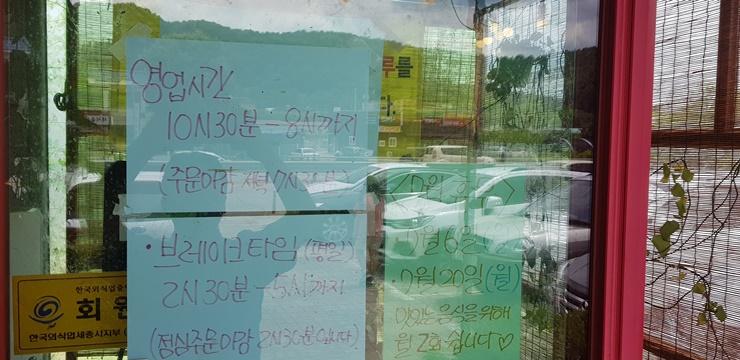 영업시간
10시30분-8시까지
(주문마감 저녁 7시30분)
• 브레이크타임(평일)
2시30분-5시까지
(점심주문마감 2시30분입니다)
6일
20일(월)
맛있는 음식을 위해
월 2회 쉽니다♡
를
다.
한국외식업중
회원
한국외식업세종시지부